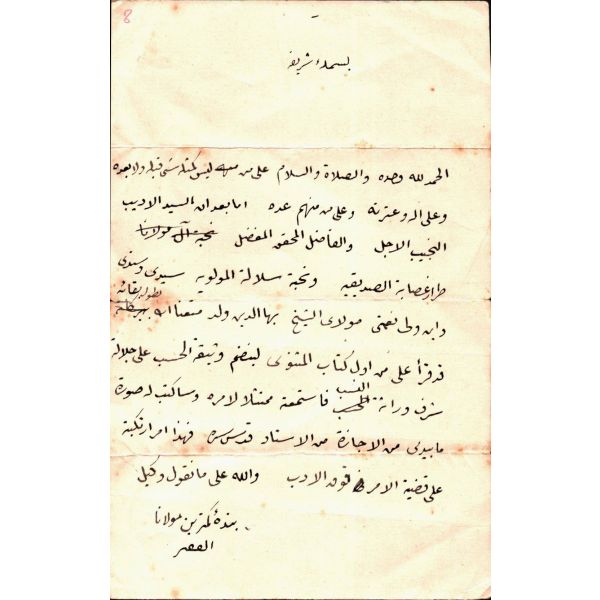 8
بسمله شریفه
الحمد لله وحده والصلاة والسلام على من ليس كمثله شئ قبله ولا بعده
وعلى آله وعترته وعلى من منهم عده اما بعد ان السيد الاديب
النجيب الاجل والفاضل المحقق المفضل نخبة آل مولانا
طراز عصابة الصديقيه ونخبة سلالة المولويه سيدى وسندى
وابن ولى نعمتى مولاى الشيخ بها الدين ولد متعنا الله بطول بقائه
قد قرأ على من اول كتاب المثنوى لينضم وثيقة الحسب على جلالة
شرف وراثة النسب فاستمعته ممتثلا لامره وساكتب له صورة
ما بيدى من الاجازة من الاستاد قدس سره فهذا امر ارتكبته
على قضية الامر فوق الادب والله على ما نقول وكيل
بنده كمترين مولانا
الفقير